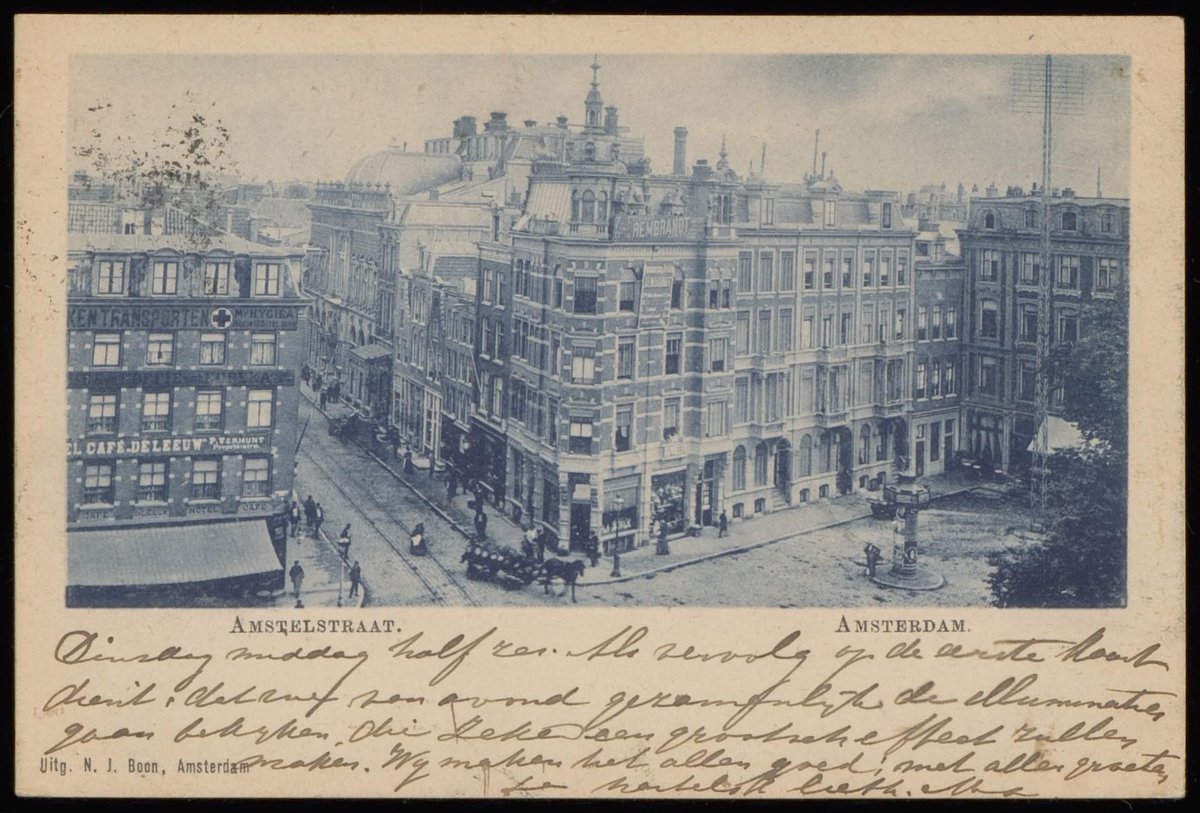 REMBRANDT
KENTRANSPORTEN Mij HYGIEA
L CAFÉ-DE LEEUW P. VERMUNT
Proprietaire
CAFÉ HOTEL CAFÉ
AMSTELSTRAAT. AMSTERDAM.
Dinsdag middag half zes. Als vervolg op de eerste kaart
dient, dat wij van avond gezamenlijk de illuminaties
gaan bekijken, die zeker een grootsch effect zullen
maken. Wij maken het allen goed; met allen groeten
Uitg. N. J. Boon, Amsterdam
je hartelijk